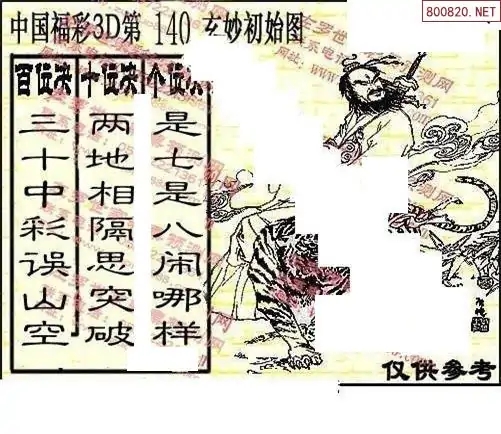 800820.NET
中国福彩3D第 140 玄妙初始图
百位决 十位决 个位决
三十中彩误山空
两地相隔思突破
是七是八闹哪样
仅供参考